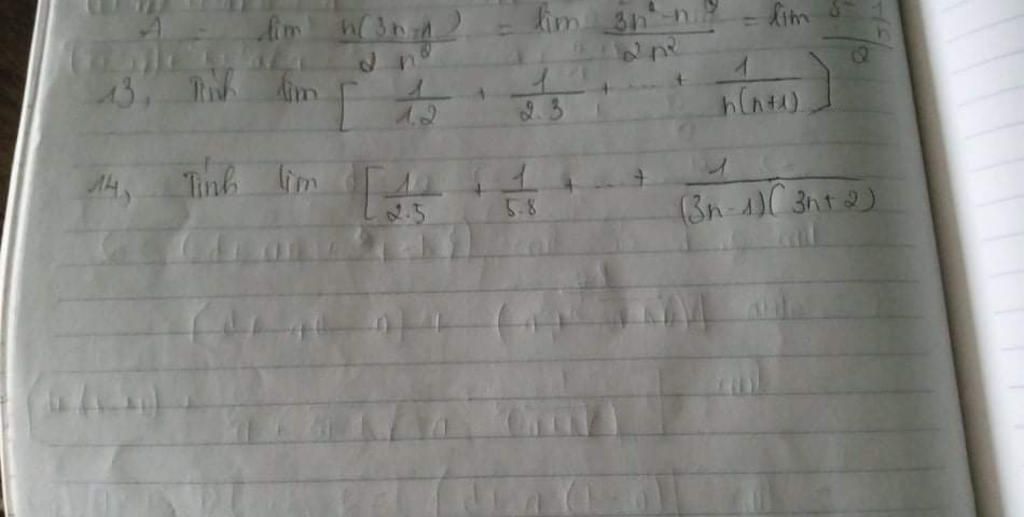 A = lim n(3n-1)/2n² = lim 3n²-n/2n² = lim 3-1/n/2
13, Tính lim [1/1.2 + 1/2.3 + ... + 1/n(n+1)]
14, Tính lim [1/2.5 + 1/5.8 + ... + 1/(3n-1)(3n+2)